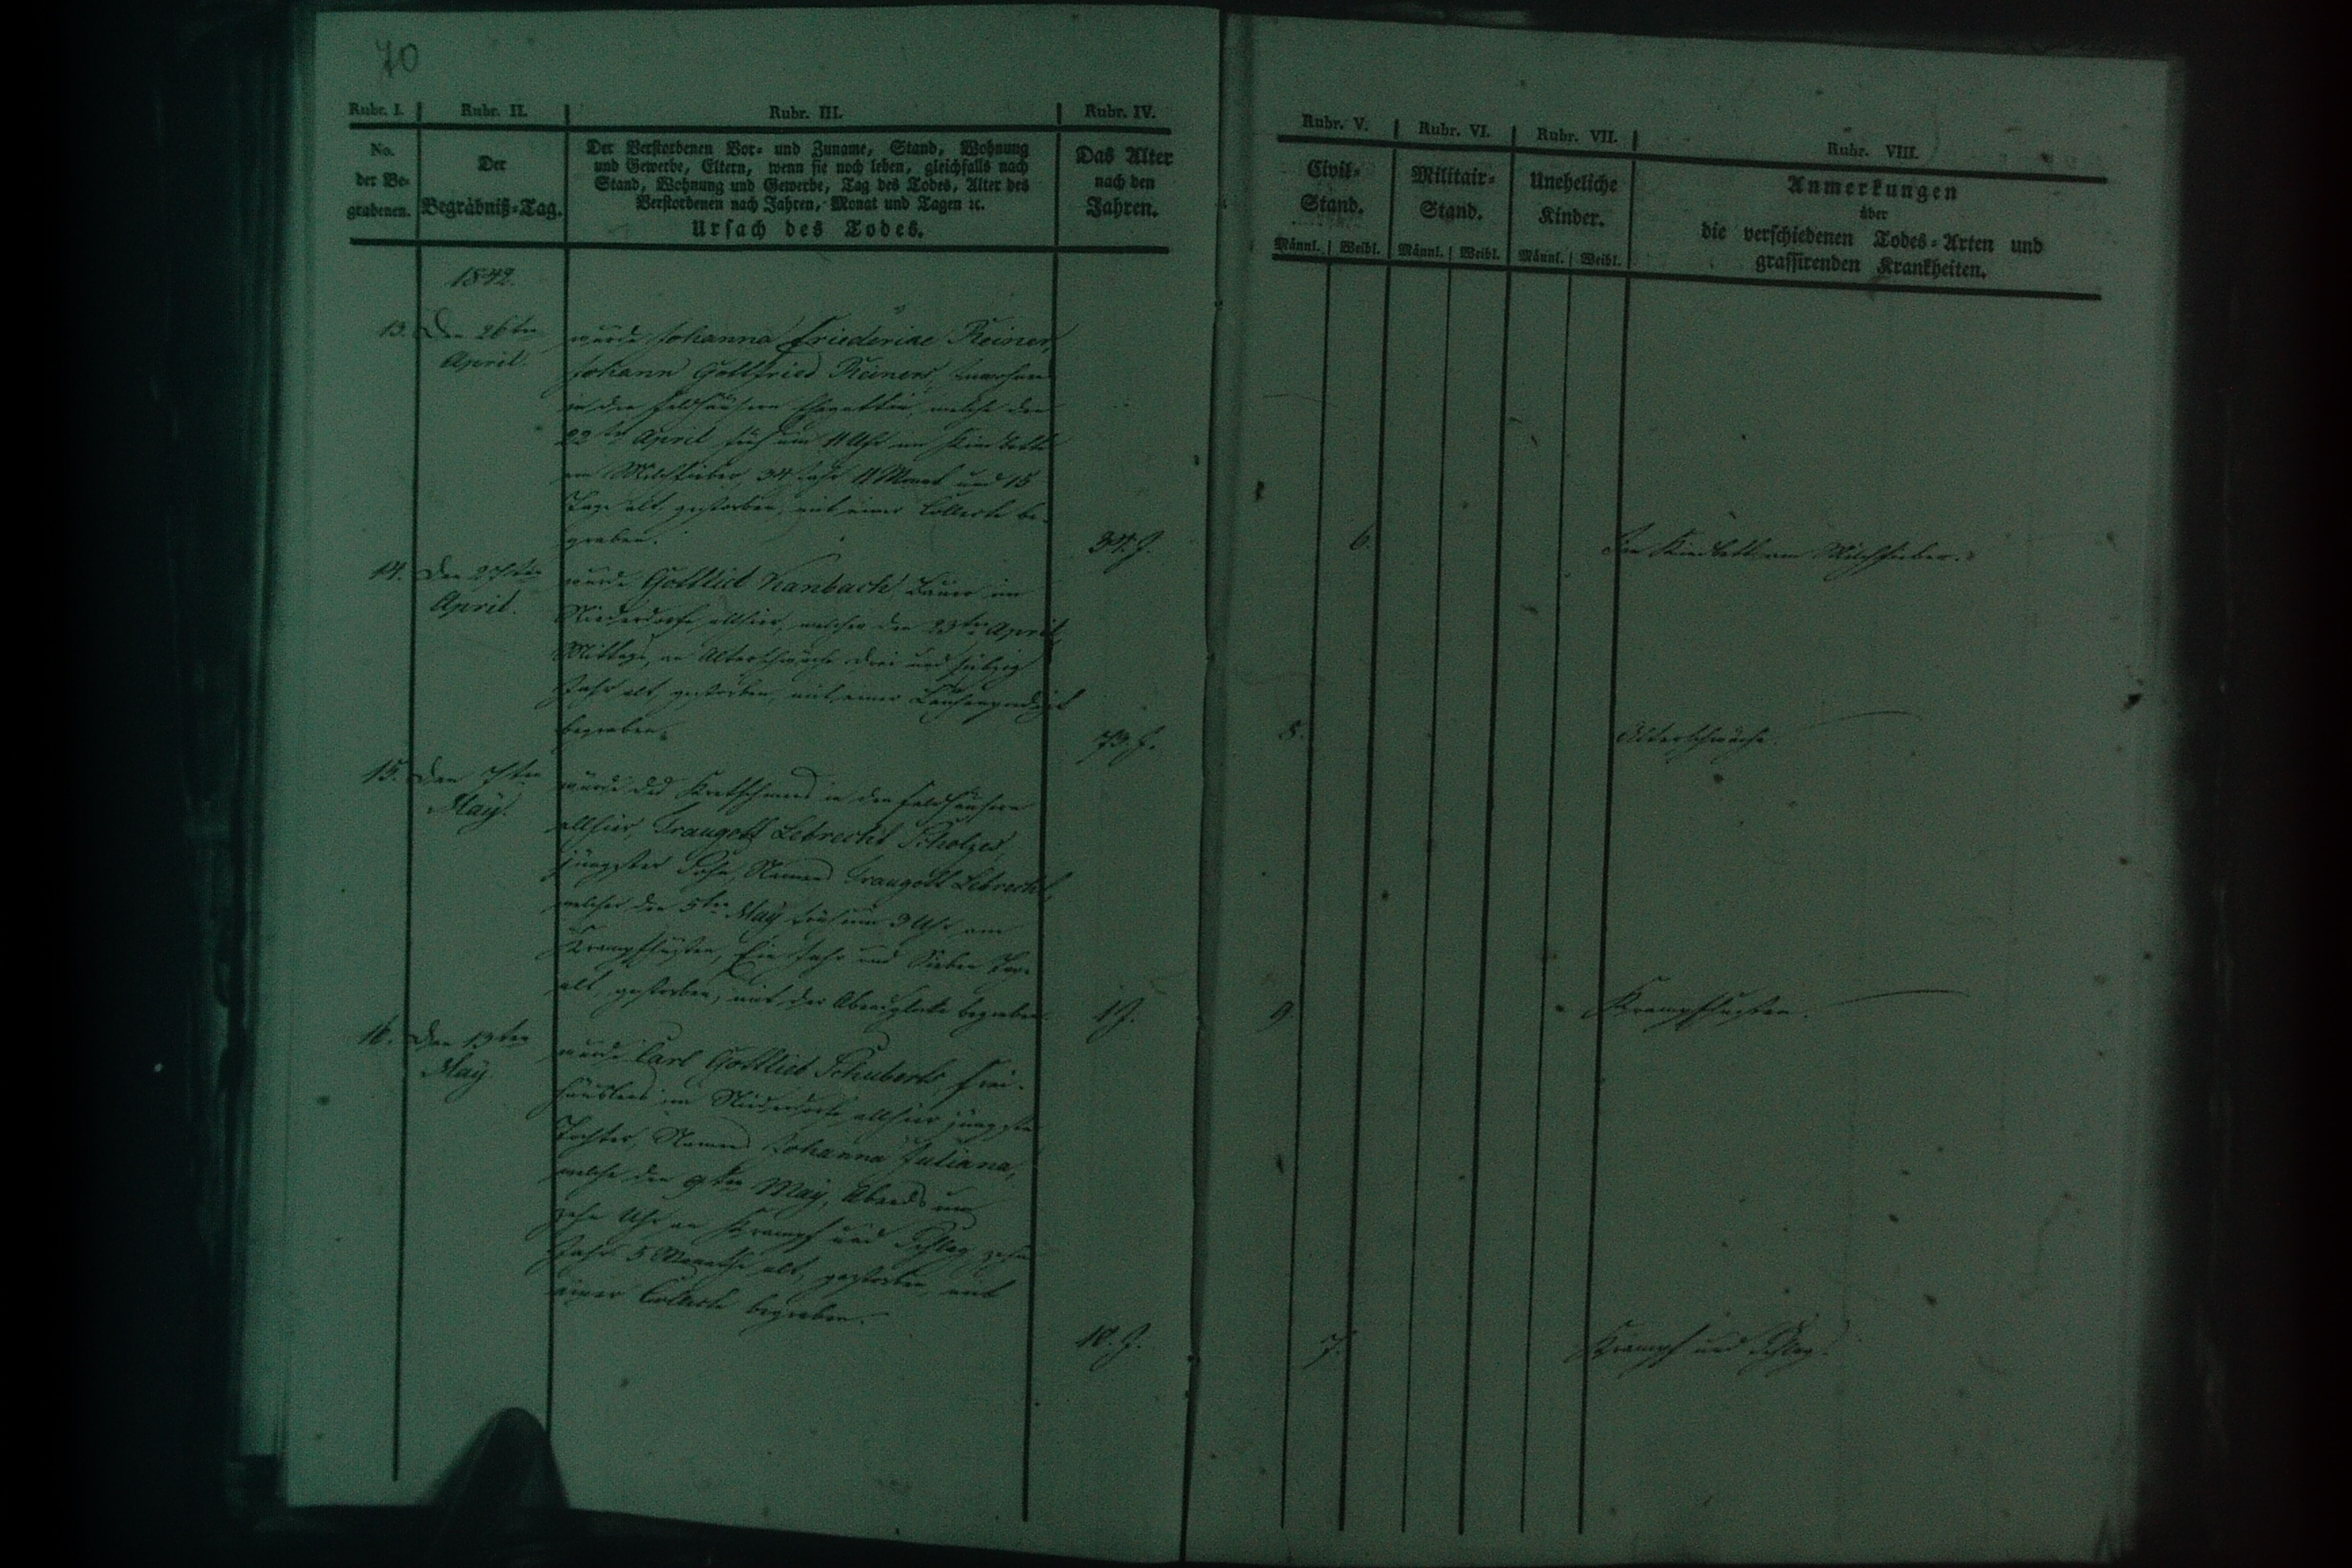 70
Rubr. I. Rubr. II. Rubr. III. Rubr. IV.
No. der Be- grabenen.
Der Begräbniß-Tag.
Der Verstorbenen Vor- und Zuname, Stand, Wohnung
und Gewerbe, Eltern, wenn sie noch leben, gleichfalls nach
Stand, Wohnung und Gewerbe, Tag des Todes, Alter des
Verstorbenen nach Jahren, Monat und Tagen ꝛc.
Ursach des Todes.
Das Alter
nach den
Jahren.
1842.
13. Den 26ten
April.
wurde Johanna Friederike Reiner,
Johann Gottfried Reiners,
in den Feldhäusern Ehegattin, welche den
22ten April früh um 11 Uhr im Kindbette
am Milchfieber, 34 Jahr 11 Monat und 15
Tage alt, gestorben, mit einer Collecte be-
graben.
34. J.
14. Den 27ten
April.
wurde Gottlieb Kanbach, Bauer im
Niederdorfe allhier, welcher den 23ten April,
Mittags, an Alterschwäche drei und siebzig
Jahr alt, gestorben, mit einer Leichenpredigt
begraben.
73. J.
15. Den 7ten
May.
wurde des Kretschmers in den Feldhäusern
allhier, Traugott Lebrecht Scholzes,
jüngster Sohn, Namens Traugott Lebrecht,
welcher den 5ten May früh um 3 Uhr, am
Krampfhusten, Ein Jahr und Sieben Tage
alt, gestorben, mit der Abendglocke begraben.
1 J.
16. Den 13ten
May.
wurde Carl Gottlieb Schuberts, Frei-
häuslers im Niederdorfe allhier jüngste
Tochter, Namens Johanna Juliana,
welche den 9ten May, Abends um
zehn Uhr an Krampf und Schlag, zehn
Jahr 5 Monathe alt, gestorben, mit
einer Collecte begraben.
10. J.
Rubr. V. Rubr. VI. Rubr. VII. Rubr. VIII.
Civil-
Stand.
Militair-
Stand.
Uneheliche
Kinder.
Anmerkungen
über
die verschiedenen Todes-Arten und
grassirenden Krankheiten.
Männl. Weibl. Männl. Weibl. Männl. Weibl.
6. Im Kindbett am Milchfieber.
8. Alterschwäche.
9. Krampfhusten.
7. Krampf und Schlag.